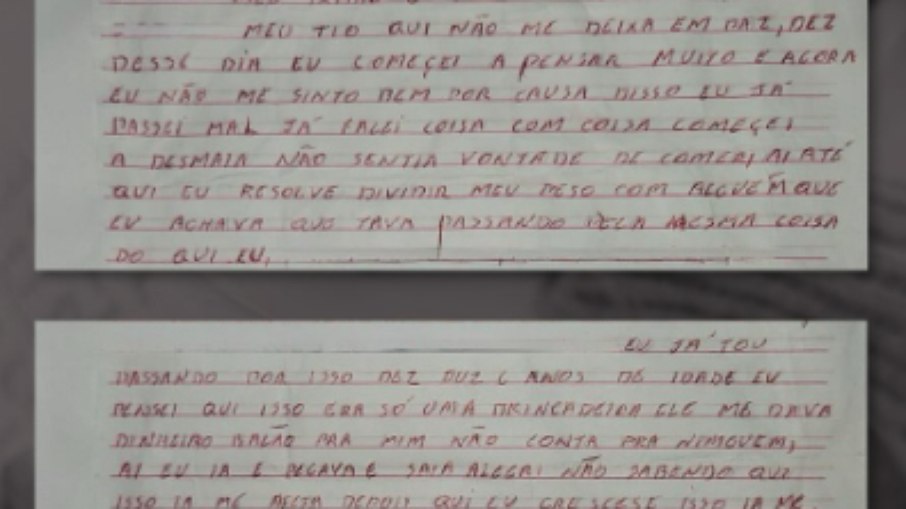 MEU TIO QUI NÃO ME DEIXA EM PAZ, DEZ
DESSE DIA EU COMEÇEI A PENSAR MUITO E AGORA
EU NÃO ME SINTO BEM POR CAUSA DISSO EU JÁ
PASSEI MAL JÁ FALEI COISA COM COISA COMEÇEI
A DESMAIA NÃO SENTIA VONTADE DE COMER, AI ATÉ
QUI EU RESOLVE DIVIDIR MEU PESO COM ALGUÉM QUE
EU ACHAVA QUE TAVA PASSANDO PELA MESMA COISA
DO QUI EU,
EU JÁ TOU
PASSANDO POR ISSO DEZ DUZ 6 ANOS DE IDADE EU
PENSEI QUI ISSO ERA SÓ UMA BRINCADEIRA ELE ME DAVA
DINHEIRO BALÃO PRA MIM NÃO CONTA PRA NIMGUEM,
AI EU IA E PEGAVA E SAIA ALEGRI NÃO SABENDO QUI
ISSO IA ME DEPOIS QUI EU CRESCESE ISSO IA ME